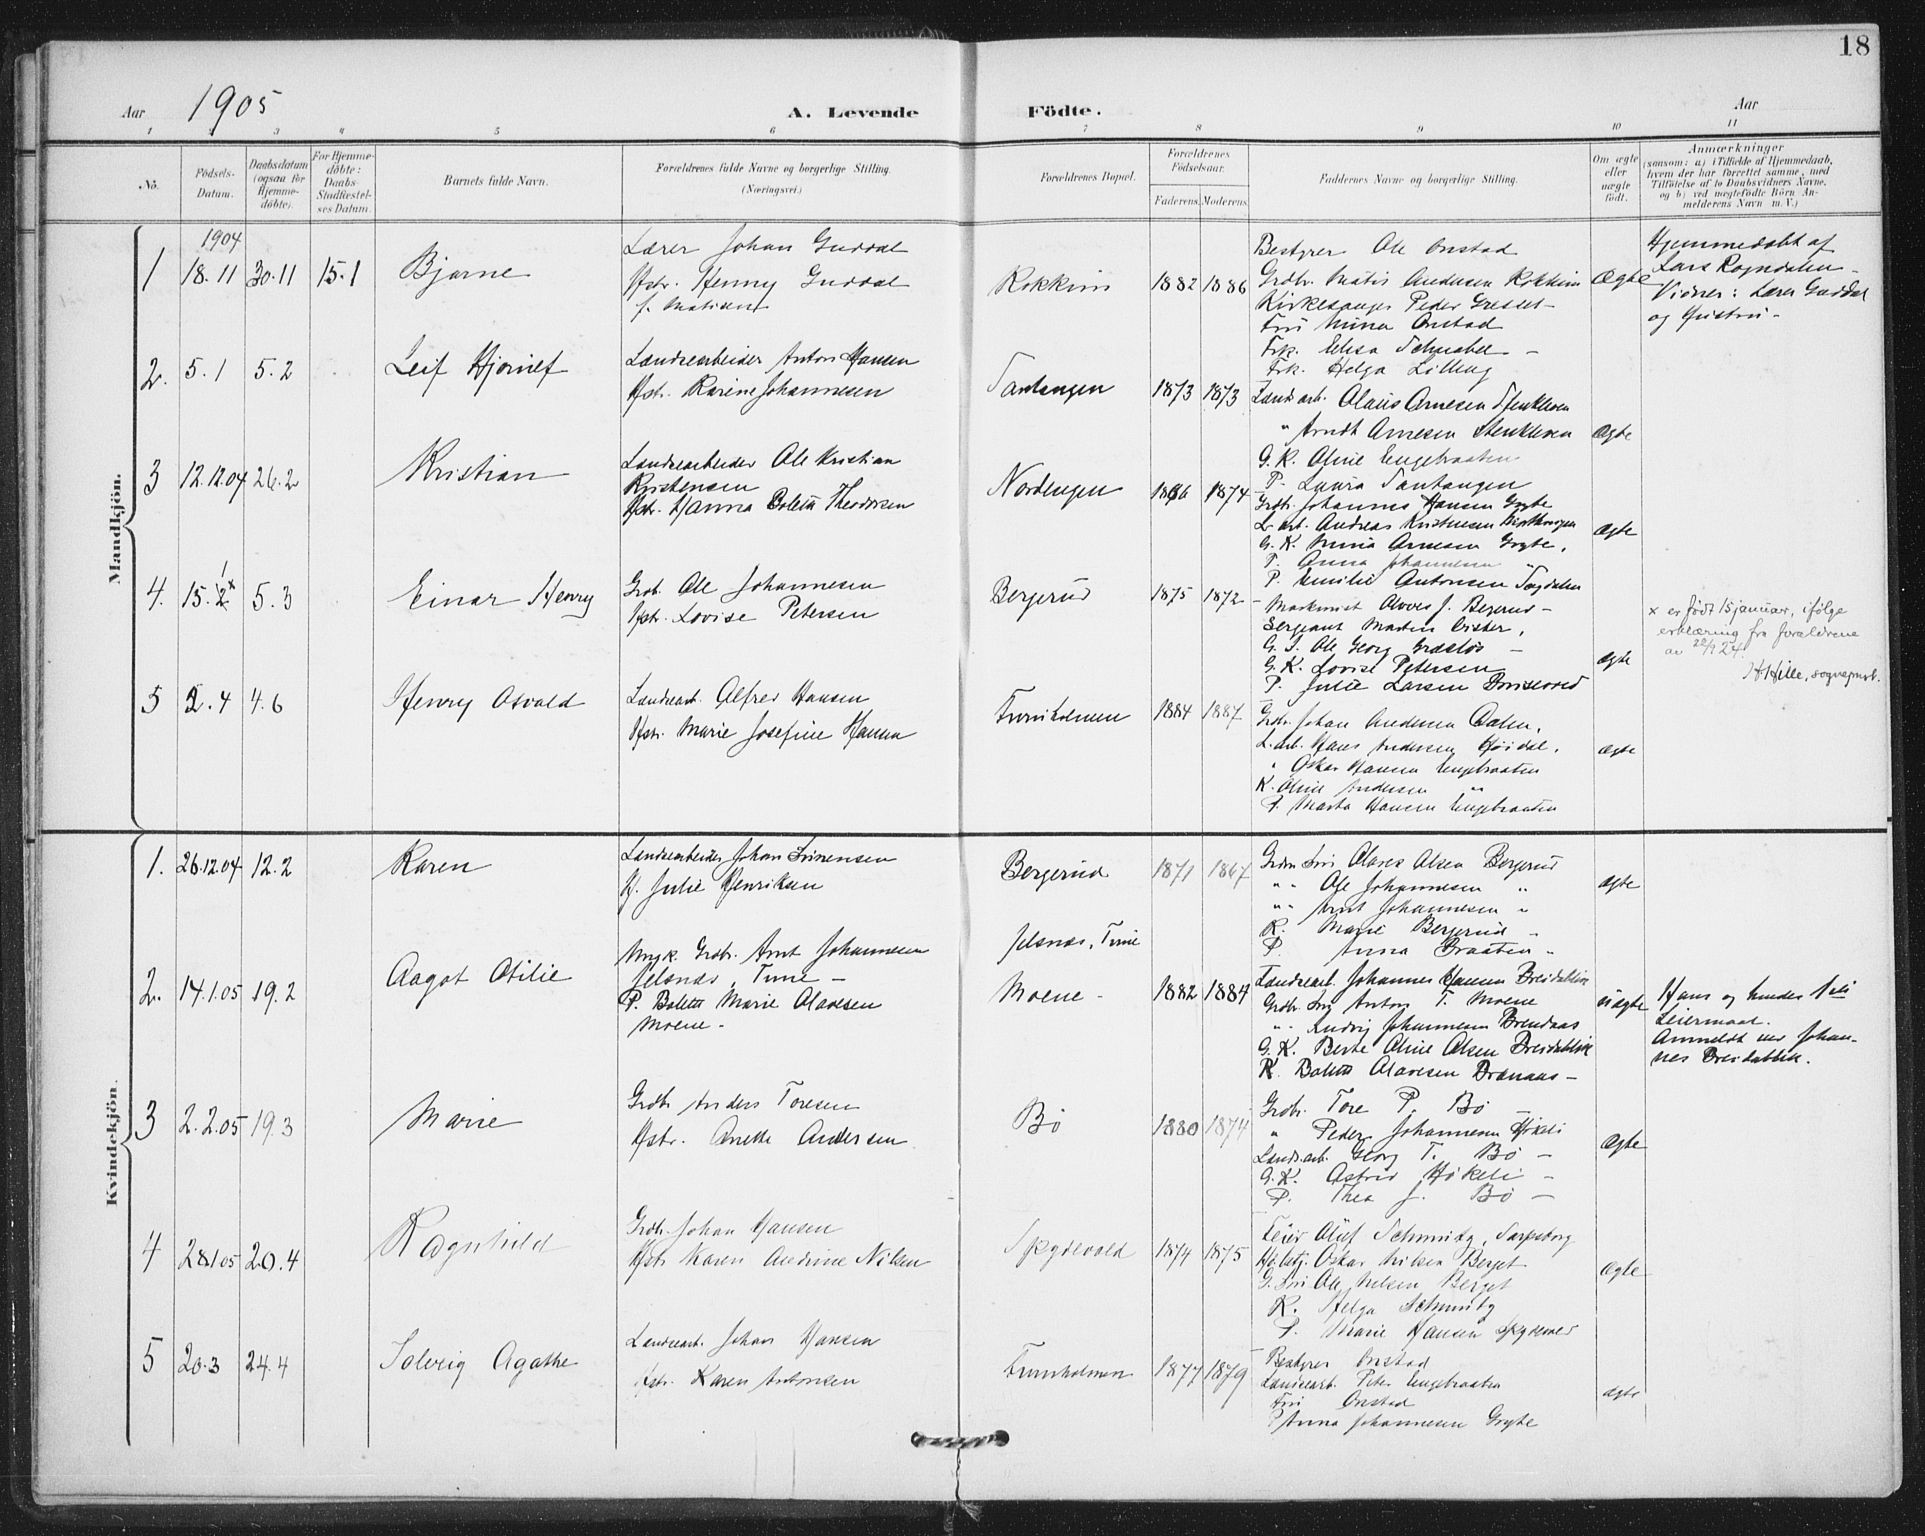 18
Aar 1905 A. Levende Födte. Aar
1 2 3 4 5 6 7 8 9 10 11
No. Födsels-Datum. Daabsdatum (ogsaa for Hjemme-döbte). For Hjemme-döbte: Daabs-Stadfæstel-ses Datum. Barnets fulde Navn. Forældrenes fulde Navne og borgerlige Stilling. (Næringsvei.) Forældrenes Bopæl. Forældrenes Födselsaar. Faderens. Moderens. Faddernes Navne og borgerlige Stilling. Om ægte eller uægte födt. Anmærkninger
(saasom: a) i Tilfælde af Hjemmedaab,
hvem der har forrettet samme, med
Tilföielse af to Daabsvidners Navne,
og b) ved uægtefödte Börn An-
melderens Navn m. V.)
Mandkjön.
1904
1 18.11 30.11 15.1 Bjarne
Lærer Johan Guddal
Hstr. Henny Guddal
Rokkim 1882 1886
Bestyrer Ole Onstad
Grdbr. Matis Andersen Rokkim
Kirkesanger Peder
Fru Mina Onstad
Frk. Elisa Schnabel
Frk. Helga
Ægte
Hjemmedøbt af
Lars Rogndalen
Vidner: Lærer Guddal
og Hustru
2. 5.1 5.2 Leif Hjørlief
Landearbeider Anton Hansen
Hstr. Karine Johannesen
Tantangen 1873 1873
Landearb. Olaus Arnesen Stenkleven
" Arndt Arnesen Stenkleven
G. K. Oline Engebraaten
P. Laura Tantangen
Ægte
3 12.12.04 26.2 Kristian
Landearbeider Ole Kristian
Kristensen
Hstr. Hanna Bolette Theodorsen
Nordengen 1866 1874
Grdbr. Johannes Hansen Gryte
L. arb. Andreas Kristensen
G. K. Mina Arnesen Gryte,
P. Anna Johannesen "
Ægte
4. 15.2 x 1 5.3 Einar Henry
Grdb. Ole Johannesen
Hstr. Lovise Petersen
Bergerud 1875 1872
P. Emilie Antonsen Tosgdalen
Maskinist Olaves J. Bergerud
Sergeant Martin
G. S. Ole Georg
G. K. Lovise Petersen
P. Julie Larsen
Ægte
x er født 15 januar, ifølge
erklæring fra foreldrene
av 22/9 24.
H. Hille, sogneprest.
5 2.4 4.6 Henry Osvald
Landearb. Alfred Hansen
Hstr. Marie Josefine Hansen
Furuholmen 1884 1887
Grdb. Johan Andersen Dalen,
L. arb. Hans Andersen Høidal,
" Oskar Hansen Engebraaten
K. Oline Andersen "
P. Marta Hansen Engebraaten
ægte
Kvindekjön.
1. 26.12.04 12.2 Karen
Landearbeider Johan Sørensen
H. Julie Henriksen
Bergerud 1871 1867
Grdbr. Søn Olaves Olsen Bergerud
" " Ole Johannesen "
" " Arnt Johannesen "
K. Marie Bergerud
P. Anna Braaten
ægte
2. 14.1.05 19.2 Aagot Otilie
Ungk. Grdbr. Arnt Johannesen
Jelsnæs, Tune
P. Bolette Marie Olavesen
Moene
Jelsnæs, Tune
Moene 1882 1884
Landearb. Johannes Hansen Breidablik
Grdbr. Søn Anton T. Moene
" Ludvig Johannesen Brendaas
G. K. Berte Oline Olsen Breidablik
K. Bolette Olavesen Brænaas
uægte
Hans og hendes 1ste
Leiermaal.
Anmeldt ved Johan-
nes Breidablik.
3 2.2.05 19.3 Marie
Grdbr Anders Toresen
Hstr. Anette Andersen
Bø 1880 1874
Grdbr. Tore P. Bø
" Peder Johannesen Høkeli
Landearb. Georg T. Bø
G. K. Astrid Høkeli
P. Thea J. Bø
Ægte
4 28.1.05 20.4 Ragnhild
Grdbr. Johan Hansen
Hstr. Karen Andrine Nilsen
Spydevold 1874 1875
Feier Oluf Schmidtz, Sarpsborg
Oskar Nilsen Berget
G. Søn Ole Nilsen Berget
K. Helga Schmidtz
P. Marie Hansen Spydevold
Ægte
5 20.3 24.4 Solveig Agathe
Landearb. Johan Hansen
Hstr. Karen Antonsen
Furuholmen 1877 1879
Bestyrer Onstad
Landearb. Peter Engebraaten
Fru Onstad
P. Anna Johannesen Gryte
ægte